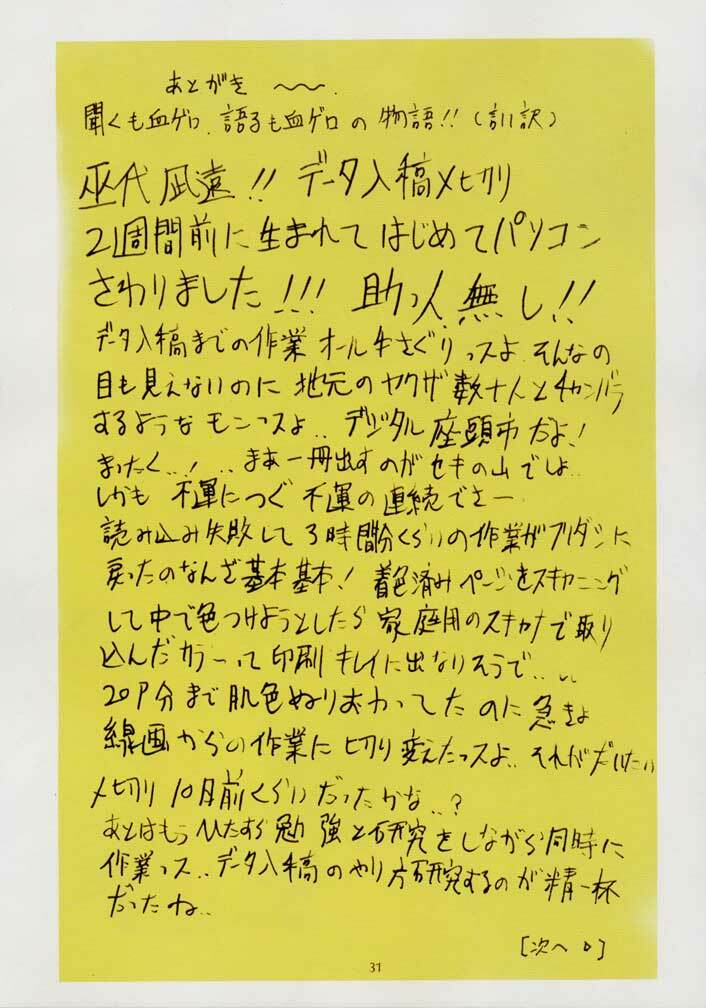 あとがき 〜〜.
聞くも血ゲロ、語るも血ゲロの物語!!(言い訳)
巫代凪遠!! データ入稿〆切り
2週間前に生まれてはじめてパソコン
さわりました!!! 助っ人無し!!
データ入稿までの作業オール手さぐりっスよ、そんなの
目も見えないのに地元のヤクザ数十人とチャンバラ
するようなモンっスよ、、デジタル座頭市だよ!
まったく、、! 、、まあ一冊出すのがセキの山でしょ、、
しかも不運につぐ不運の連続でさー
読み込み失敗して3時間分くらいの作業がフリダシに
戻ったのなんざ基本基本! 着色済みページをスキャニング
して中で色つけようとしたら家庭用のスキャナで取り
込んだカラーって印刷キレイに出なりそうで、、
20P分まで肌色ぬりおわってたのに急きょ
線画からの作業に切り変えたっスよ、、それがだいたい
〆切り10日前くらいだったかな、、?
あとはもうひたすら勉強と研究をしながら同時に
作業っス、、データ入稿のやり方研究するのが精一杯
だったね、、
[次へ▷]
31